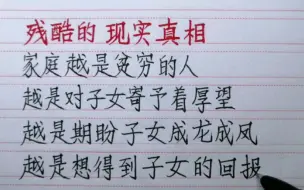 残酷的现实真相
家庭越是贫穷的人
越是对子女寄予着厚望
越是期盼子女成龙成凤
越是想得到子女的回报